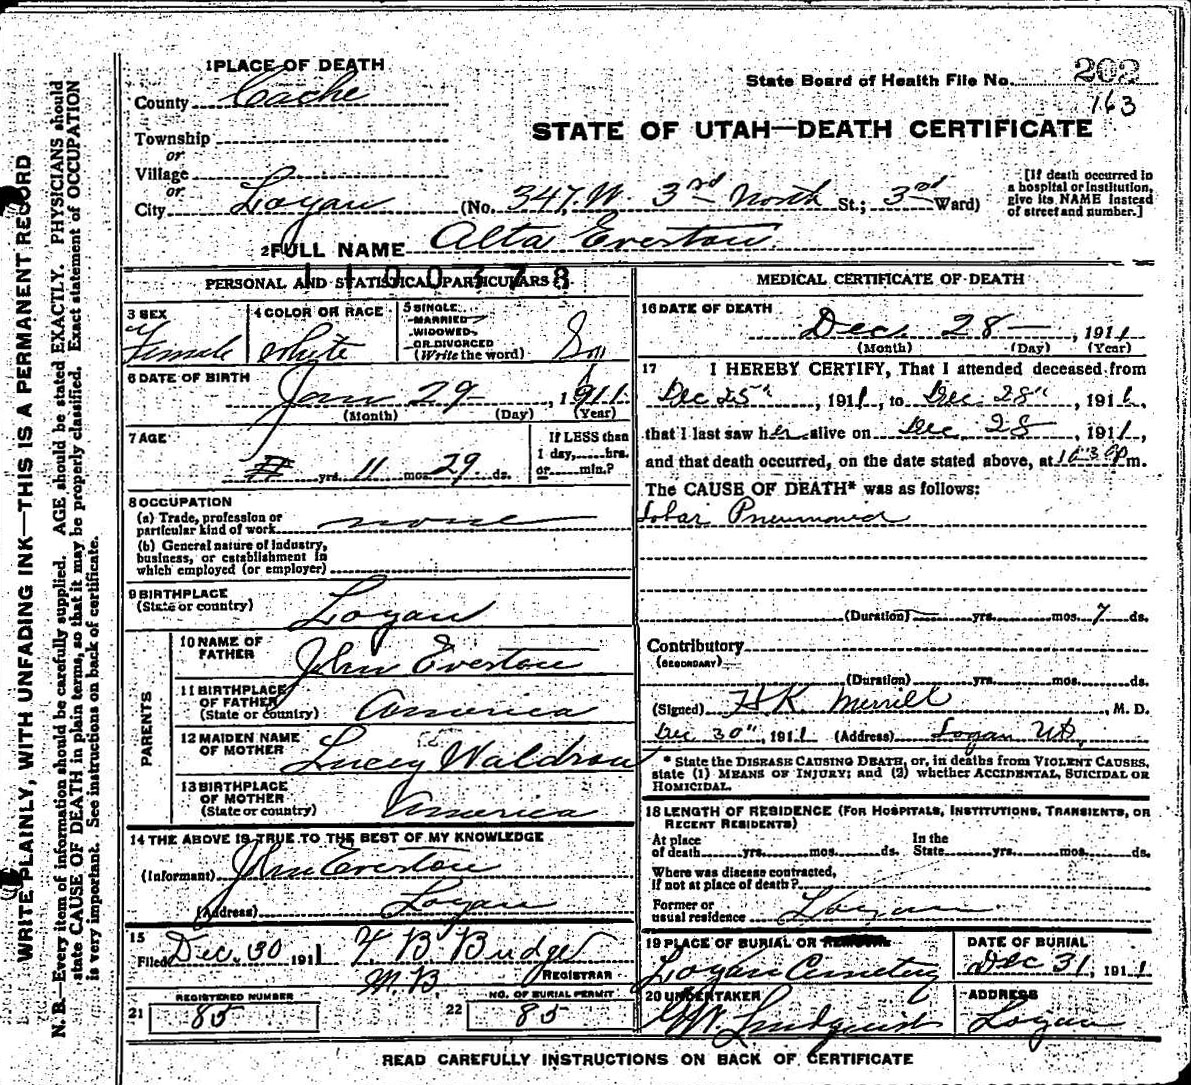 WRITE PLAINLY, WITH UNFADING INK—THIS IS A PERMANENT RECORD
N. B.—Every item of information should be carefully supplied. AGE should be stated EXACTLY. PHYSICIANS should
state CAUSE OF DEATH in plain terms, so that it may be properly classified. Exact statement of OCCUPATION
is very important. See instructions on back of certificate.
1 PLACE OF DEATH
State Board of Health File No. 202
163
County Cache
STATE OF UTAH—DEATH CERTIFICATE
Township
or
Village
or
City Logan (No. 347 W. 3rd North St.; 3rd Ward)
[If death occurred in
a hospital or institution,
give its NAME instead
of street and number.]
2 FULL NAME Alta Everton
1100378
PERSONAL AND STATISTICAL PARTICULARS
3 SEX
Female
4 COLOR OR RACE
White
5 SINGLE
MARRIED
WIDOWED
OR DIVORCED
(Write the word)
6 DATE OF BIRTH
Jan 29, 1911
(Month) (Day) (Year)
7 AGE
yrs. 11 mos. 29 ds.
If LESS than
1 day, hrs.
or min.?
8 OCCUPATION
(a) Trade, profession or
particular kind of work none
(b) General nature of industry,
business, or establishment in
which employed (or employer)
9 BIRTHPLACE
(State or country) Logan
PARENTS
10 NAME OF
FATHER John Everton
11 BIRTHPLACE
OF FATHER
(State or country) America
12 MAIDEN NAME
OF MOTHER Lucey Waldron
13 BIRTHPLACE
OF MOTHER
(State or country) America
14 THE ABOVE IS TRUE TO THE BEST OF MY KNOWLEDGE
(Informant) John Everton
(Address) Logan
15
Filed Dec. 30 1911 B Budge
REGISTRAR
REGISTERED NUMBER
21 85
NO. OF BURIAL PERMIT
22 85
MEDICAL CERTIFICATE OF DEATH
16 DATE OF DEATH
Dec. 28, 1911
(Month) (Day) (Year)
17 I HEREBY CERTIFY, That I attended deceased from
Dec 25", 1911, to Dec. 28", 1911,
that I last saw her alive on Dec 28, 1911,
and that death occurred, on the date stated above, at 1030 P m.
The CAUSE OF DEATH* was as follows:
Lobar Pneumonia
(Duration) yrs. mos. 7 ds.
Contributory
(SECONDARY)
(Duration) yrs. mos. ds.
(Signed) H K Merrill, M. D.
Dec 30", 1911 (Address) Logan Ut.
* State the DISEASE CAUSING DEATH, or, in deaths from VIOLENT CAUSES,
state (1) MEANS OF INJURY; and (2) whether ACCIDENTAL, SUICIDAL OR
HOMICIDAL.
18 LENGTH OF RESIDENCE (FOR HOSPITALS, INSTITUTIONS, TRANSIENTS, OR
RECENT RESIDENTS)
At place
of death yrs. mos. ds.
In the
State yrs. mos. ds.
Where was disease contracted,
If not at place of death?
Former or
usual residence Logan
19 PLACE OF BURIAL OR
Logan Cemetery
DATE OF BURIAL
Dec 31, 1911
20 UNDERTAKER
Lundquist
ADDRESS
Logan
READ CAREFULLY INSTRUCTIONS ON BACK OF CERTIFICATE